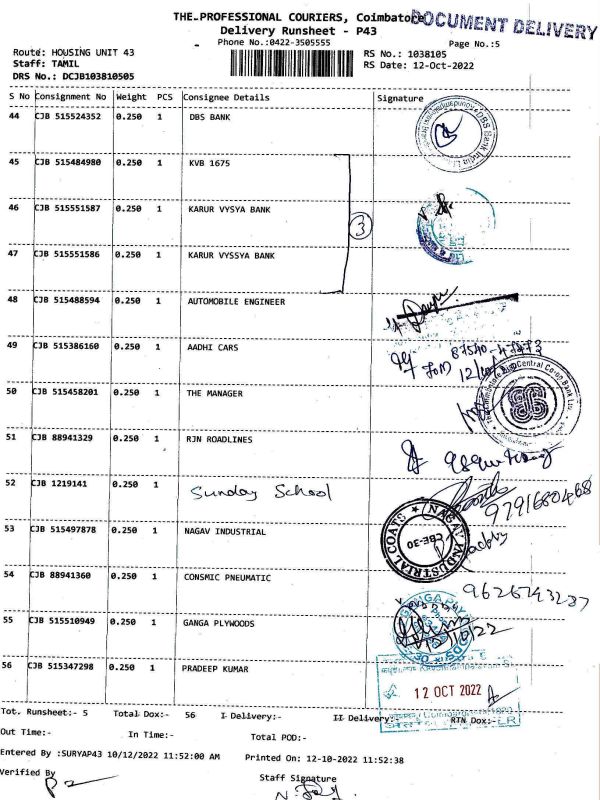 THE PROFESSIONAL COURIERS, Coimbatore
DOCUMENT DELIVERY
Delivery Runsheet - P43
Phone No.:0422-3505555
Page No.:5
Route: HOUSING UNIT 43
RS No.: 1038105
Staff: TAMIL
RS Date: 12-Oct-2022
DRS No.: DCJB103810505
S No Consignment No Weight PCS Consignee Details Signature
44 CJB 515524352 0.250 1 DBS BANK
45 CJB 515484980 0.250 1 KVB 1675
46 CJB 515551587 0.250 1 KARUR VYSYA BANK
3
47 CJB 515551586 0.250 1 KARUR VYSSYA BANK
48 CJB 515488594 0.250 1 AUTOMOBILE ENGINEER
49 CJB 515386160 0.250 1 AADHI CARS
50 CJB 515458201 0.250 1 THE MANAGER
51 CJB 88941329 0.250 1 RJN ROADLINES
52 CJB 1219141 0.250 1 Sunday School
9791680468
53 CJB 515497878 0.250 1 NAGAV INDUSTRIAL
NAGAV INDUSTRIAL COATS
CBE-30
54 CJB 88941360 0.250 1 CONSMIC PNEUMATIC
55 CJB 515510949 0.250 1 GANGA PLYWOODS
56 CJB 515347298 0.250 1 PRADEEP KUMAR
12 OCT 2022
Tot. Runsheet:- 5 Total Dox:- 56 I Delivery:- II Delivery:- RTN Dox:-
Out Time:- In Time:- Total POD:-
Entered By :SURYAP43 10/12/2022 11:52:00 AM Printed On: 12-10-2022 11:52:38
Verified By
Staff Signature